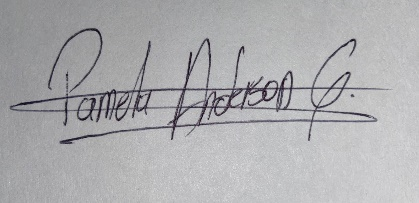 Pamela Anderson G.